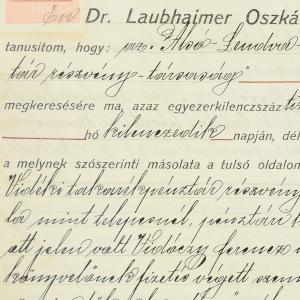 én Dr. Laubhaimer Oszká
tanusitom, hogy: az „Alsó-Lendva
tár részvény-társaság"
megkeresésére ma, azaz egyezerkilenczszáz ti
hó kilenczedik napján, dél
a melynek szószerinti másolata a tulsó oldalon
Vidéki takarékpénztár részvény
la mint telepesnel, pénztári
ott jelen volt Vidóczy Ferencz
könyvelőnek fizetés végett szem